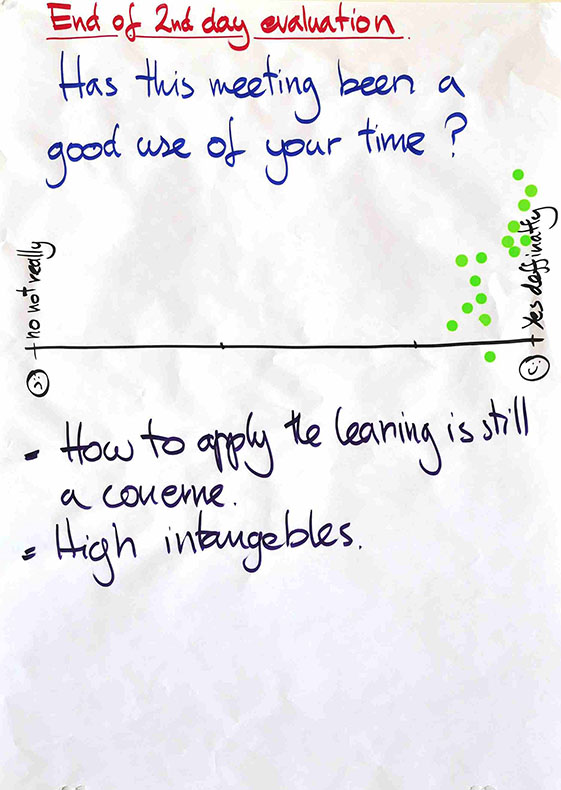 End of 2nd day evaluation.
Has this meeting been a
good use of your time?
+ no not really
+ Yes deffinatly
- How to apply the learning is still
a conerne.
= High intangebles.